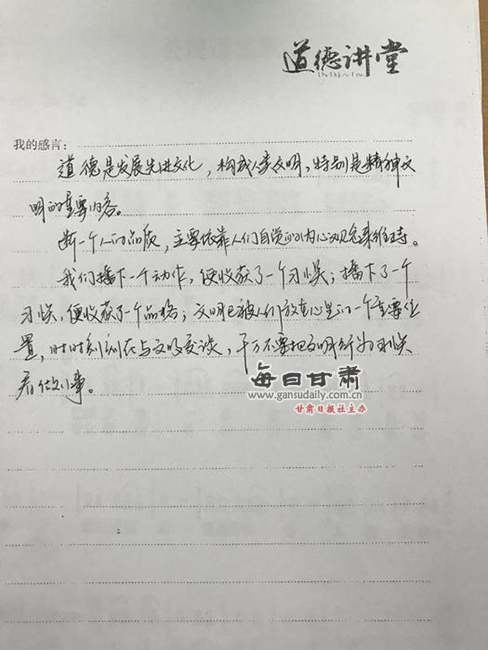 道德讲堂
我的感言：
道德是发展先进文化，构成人类文明，特别是精神文
明的重要内容。
断一个人的品质，主要依靠人们自觉的内心观念来维持。
我们播下一个动作，便收获了一个习惯；播下了一个
习惯，便收获了一个品格；文明已被人们放在心里的一个重要位
置，时时刻刻在与文明交谈，千万不要把文明行为习惯
看做小事。
每日甘肃
www.gansudaily.com.cn
甘肃日报社主办